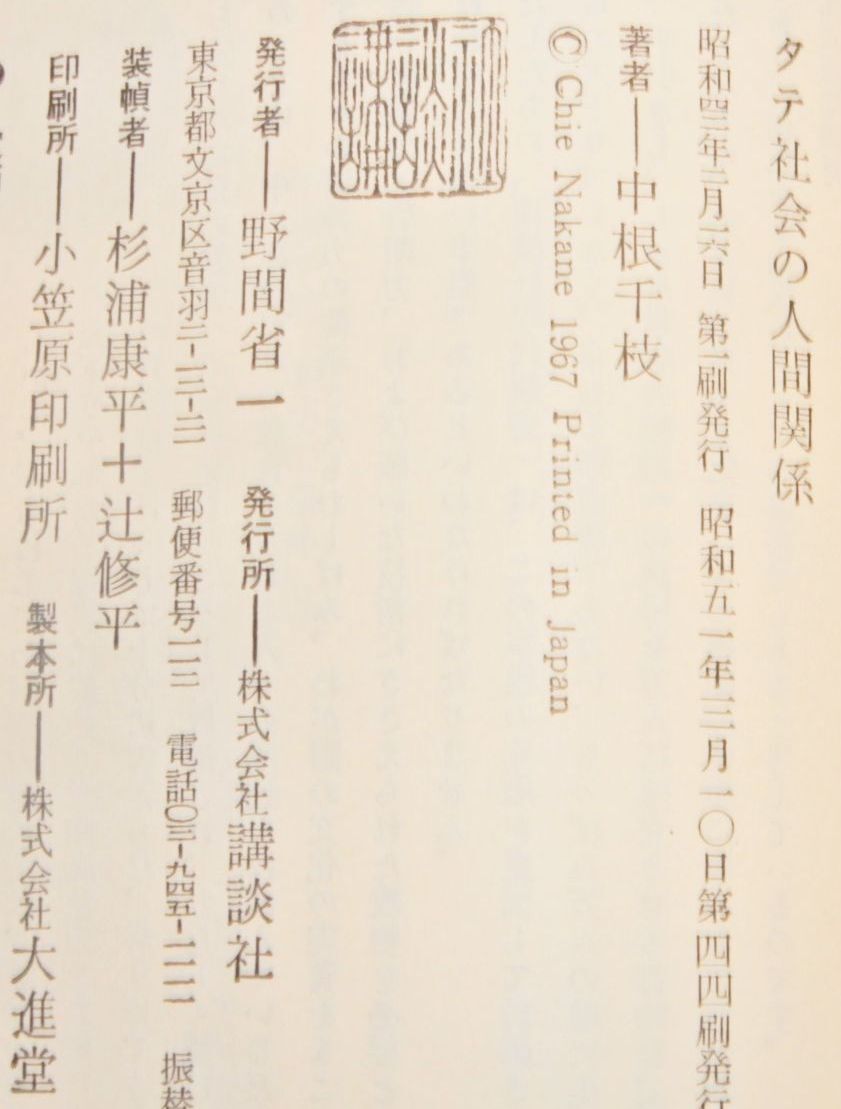 タテ社会の人間関係
昭和四二年二月一六日 第一刷発行 昭和五一年三月一〇日第四四刷発行
著者―中根千枝
© Chie Nakane 1967 Printed in Japan
発行者―野間省一 発行所―株式会社講談社
東京都文京区音羽二-一二-二一 郵便番号一一二 電話〇三-九四五-一一一一 振替
装幀者―杉浦康平+辻修平
印刷所―小笠原印刷所 製本所―株式会社大進堂